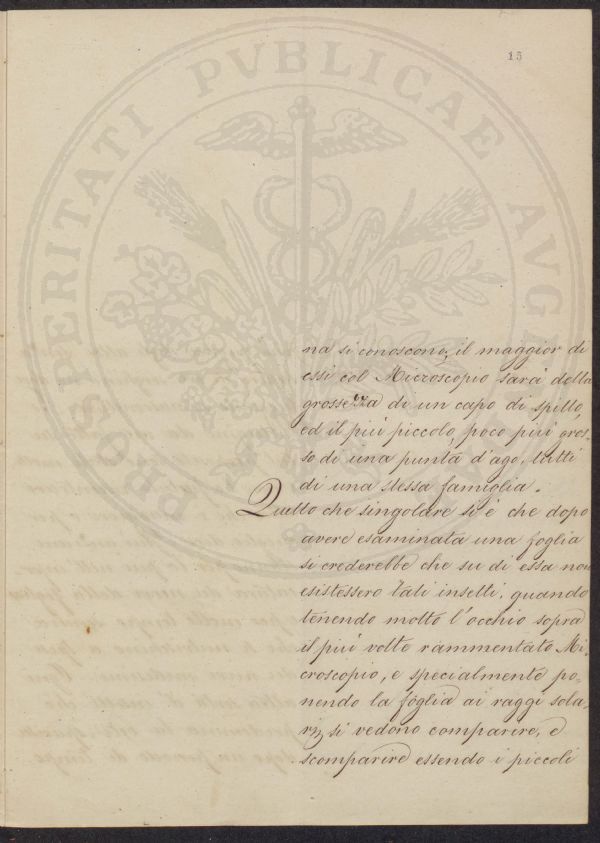 PROSPERITATI PVBLICAE AVGE
15
na si conoscono, il maggior di
essi col Microscopio sarà della
grossezza di un capo di spillo,
ed il più piccolo, poco più gros-
so di una punta d'ago, tutti
di una stessa famiglia.
Quello che singolare si è che dopo
avere esaminata una foglia
si crederebbe che su di essa non
esistessero tali insetti, quando
tenendo molto l'occhio sopra
il più volte rammentato Mi-
croscopio, e specialmente po-
nendo la foglia ai raggi sola-
ri, si vedono comparire, e
scomparire essendo i piccoli